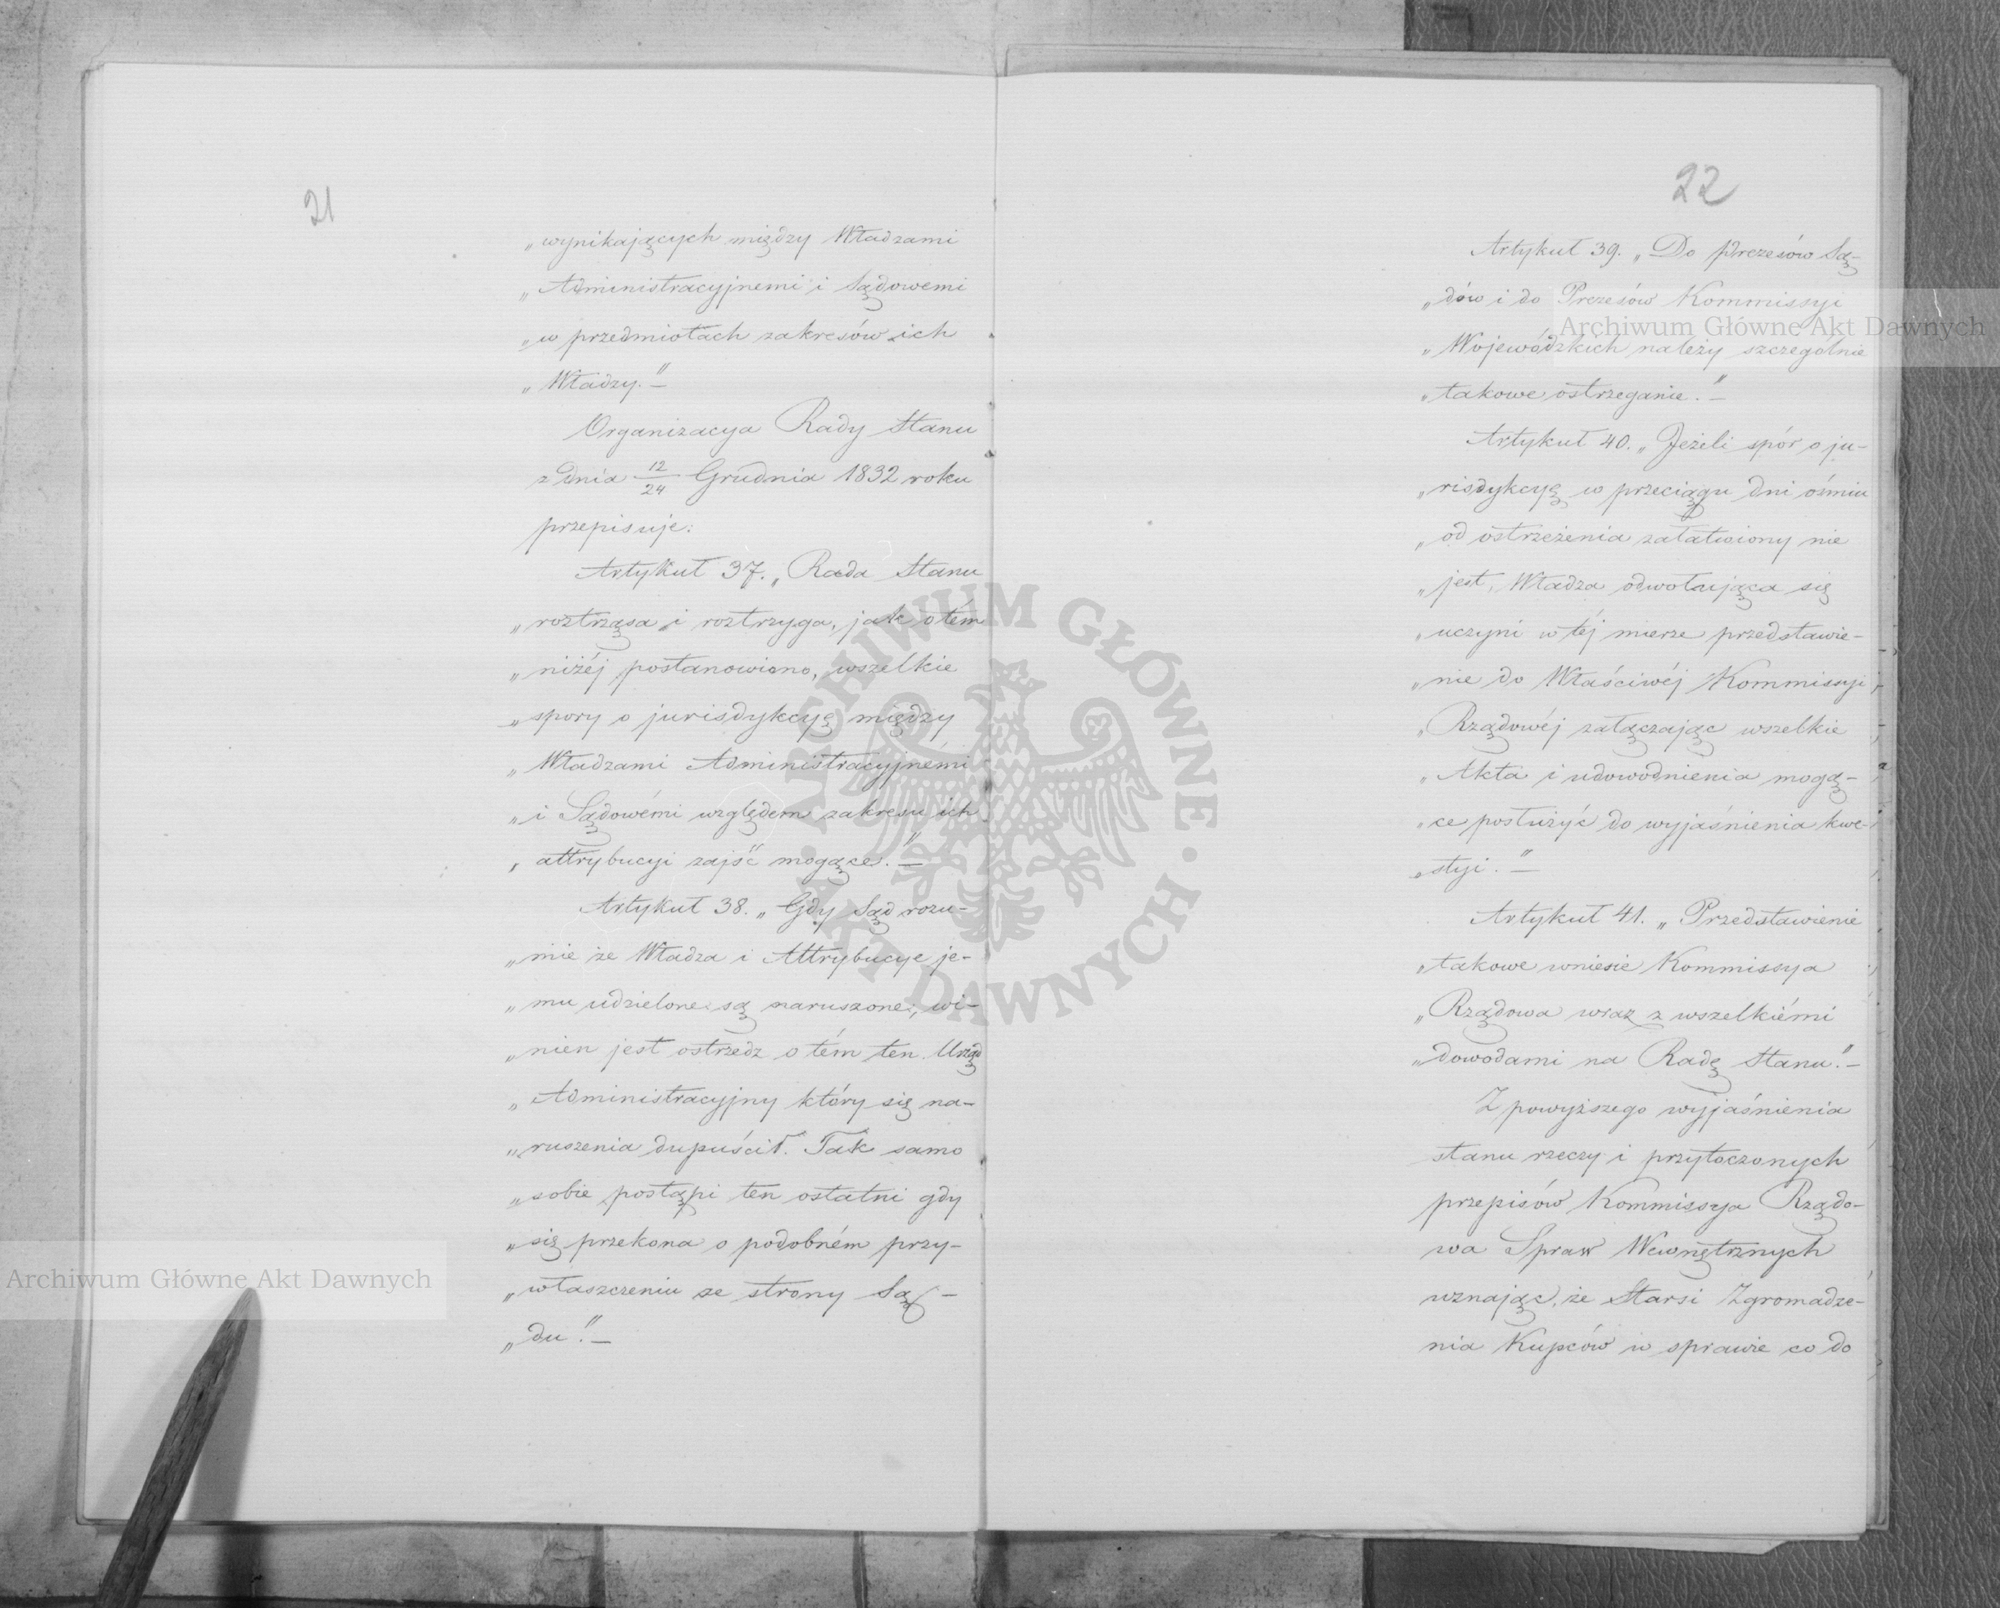 21
„wynikających między Władzami
„Administracyjnemi i Sądowemi
„w przedmiotach zakresów ich
„Władzy."—
Organizacya Rady Stanu
z dnia 12/24 Grudnia 1832 roku
przepisuje:
Artykuł 37. „Rada Stanu
„roztrząsa i roztrzyga, jak o tém
„niżéj postanowiono, wszelkie
„spory o jurisdykcyę między
„Władzami Administracyjnémi
„i Sądowémi względem zakresu ich
„attrybucyi zajść mogące."—
Artykuł 38. „Gdy Sąd rozu-
„mie że Władza i Attrybucye je-
„mu udzielone są naruszone, wi-
„nien jest ostrzedz o tém ten Urząd
„Administracyjny który się na-
„ruszenia dupuścił. Tak samo
„sobie postąpi ten ostatni gdy
„się przekona o podobném przy-
„właszczeniu ze strony Są-
„du."—
22
Artykuł 39. „Do Prezesów Są-
„dów i do Prezesów Kommissyi
„Wojewódzkich należy szczególnie
„takowe ostrzeganie."—
Artykuł 40. „Jeżeli spór o ju-
„risdykcyę w przeciągu dni ośmiu
„od ostrzeżenia załatwiony nie
„jest, Władza odwołująca się
„uczyni w téj mierze przedstawie-
„nie do Właściwéj Kommissyi
„Rządowéj załączając wszelkie
„Akta i udowodnienia mogą-
„ce posłużyć do wyjaśnienia kwe-
„styi."—
Artykuł 41. „Przedstawienie
„takowe wniesie Kommissya
„Rządowa wraz z wszelkiémi
„dowodami na Radę Stanu."—
Z powyższego wyjaśnienia
stanu rzeczy i przytoczonych
przepisów Kommissya Rządo-
wa Spraw Wewnętrznych
uznając, że Starsi Zgromadze-
nia Kupców w sprawie co do
Archiwum Główne Akt Dawnych
Archiwum Główne Akt Dawnych
ARCHIWUM GŁÓWNE AKT DAWNYCH